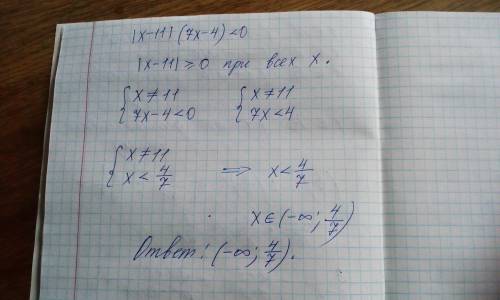 |x-11|(7x-4)<0
|x-11|≥0 при всех x.
{x≠11 {x≠11
{7x-4<0 {7x<4
{x≠11
{x<4/7 ⇒ x<4/7
x∈(-∞; 4/7)
Ответ: (-∞; 4/7).